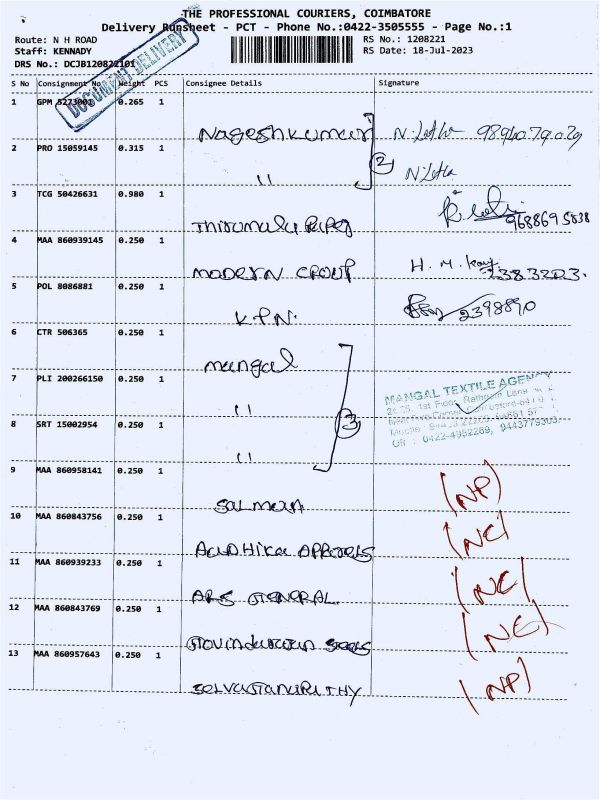 THE PROFESSIONAL COURIERS, COIMBATORE
Delivery Runsheet - PCT - Phone No.:0422-3505555 - Page No.:1
Route: N H ROAD RS No.: 1208221
Staff: KENNADY RS Date: 18-Jul-2023
DRS No.: DCJB120822101
DOCUMENT DELIVERY
S No Consignment No Weight PCS Consignee Details Signature
1 GPM 5273001 0.265 1
Nageshkumar N. Latha 9894079029
2 PRO 15059145 0.315 1
" 2 N. Latha
3 TCG 50426631 0.980 1
Thirumala Paper 9688695838
4 MAA 860939145 0.250 1
MODERN GROUP H. M.
5 POL 8086881 0.250 1
K.P.N. 2398890
6 CTR 506365 0.250 1
mangal
7 PLI 200266150 0.250 1
"
MANGAL TEXTILE AGENCY
1st Floor,
Off : 0422-4952289, 9443779303
8 SRT 15002954 0.250 1
" 3
9 MAA 860958141 0.250 1
Salman (NP)
10 MAA 860843756 0.250 1
Aadhika Apparels (NC)
11 MAA 860939233 0.250 1
ARS GENERAL (NC)
12 MAA 860843769 0.250 1
Govindarajan Steels (NC)
13 MAA 860957643 0.250 1
Selvaganapathy (NP)